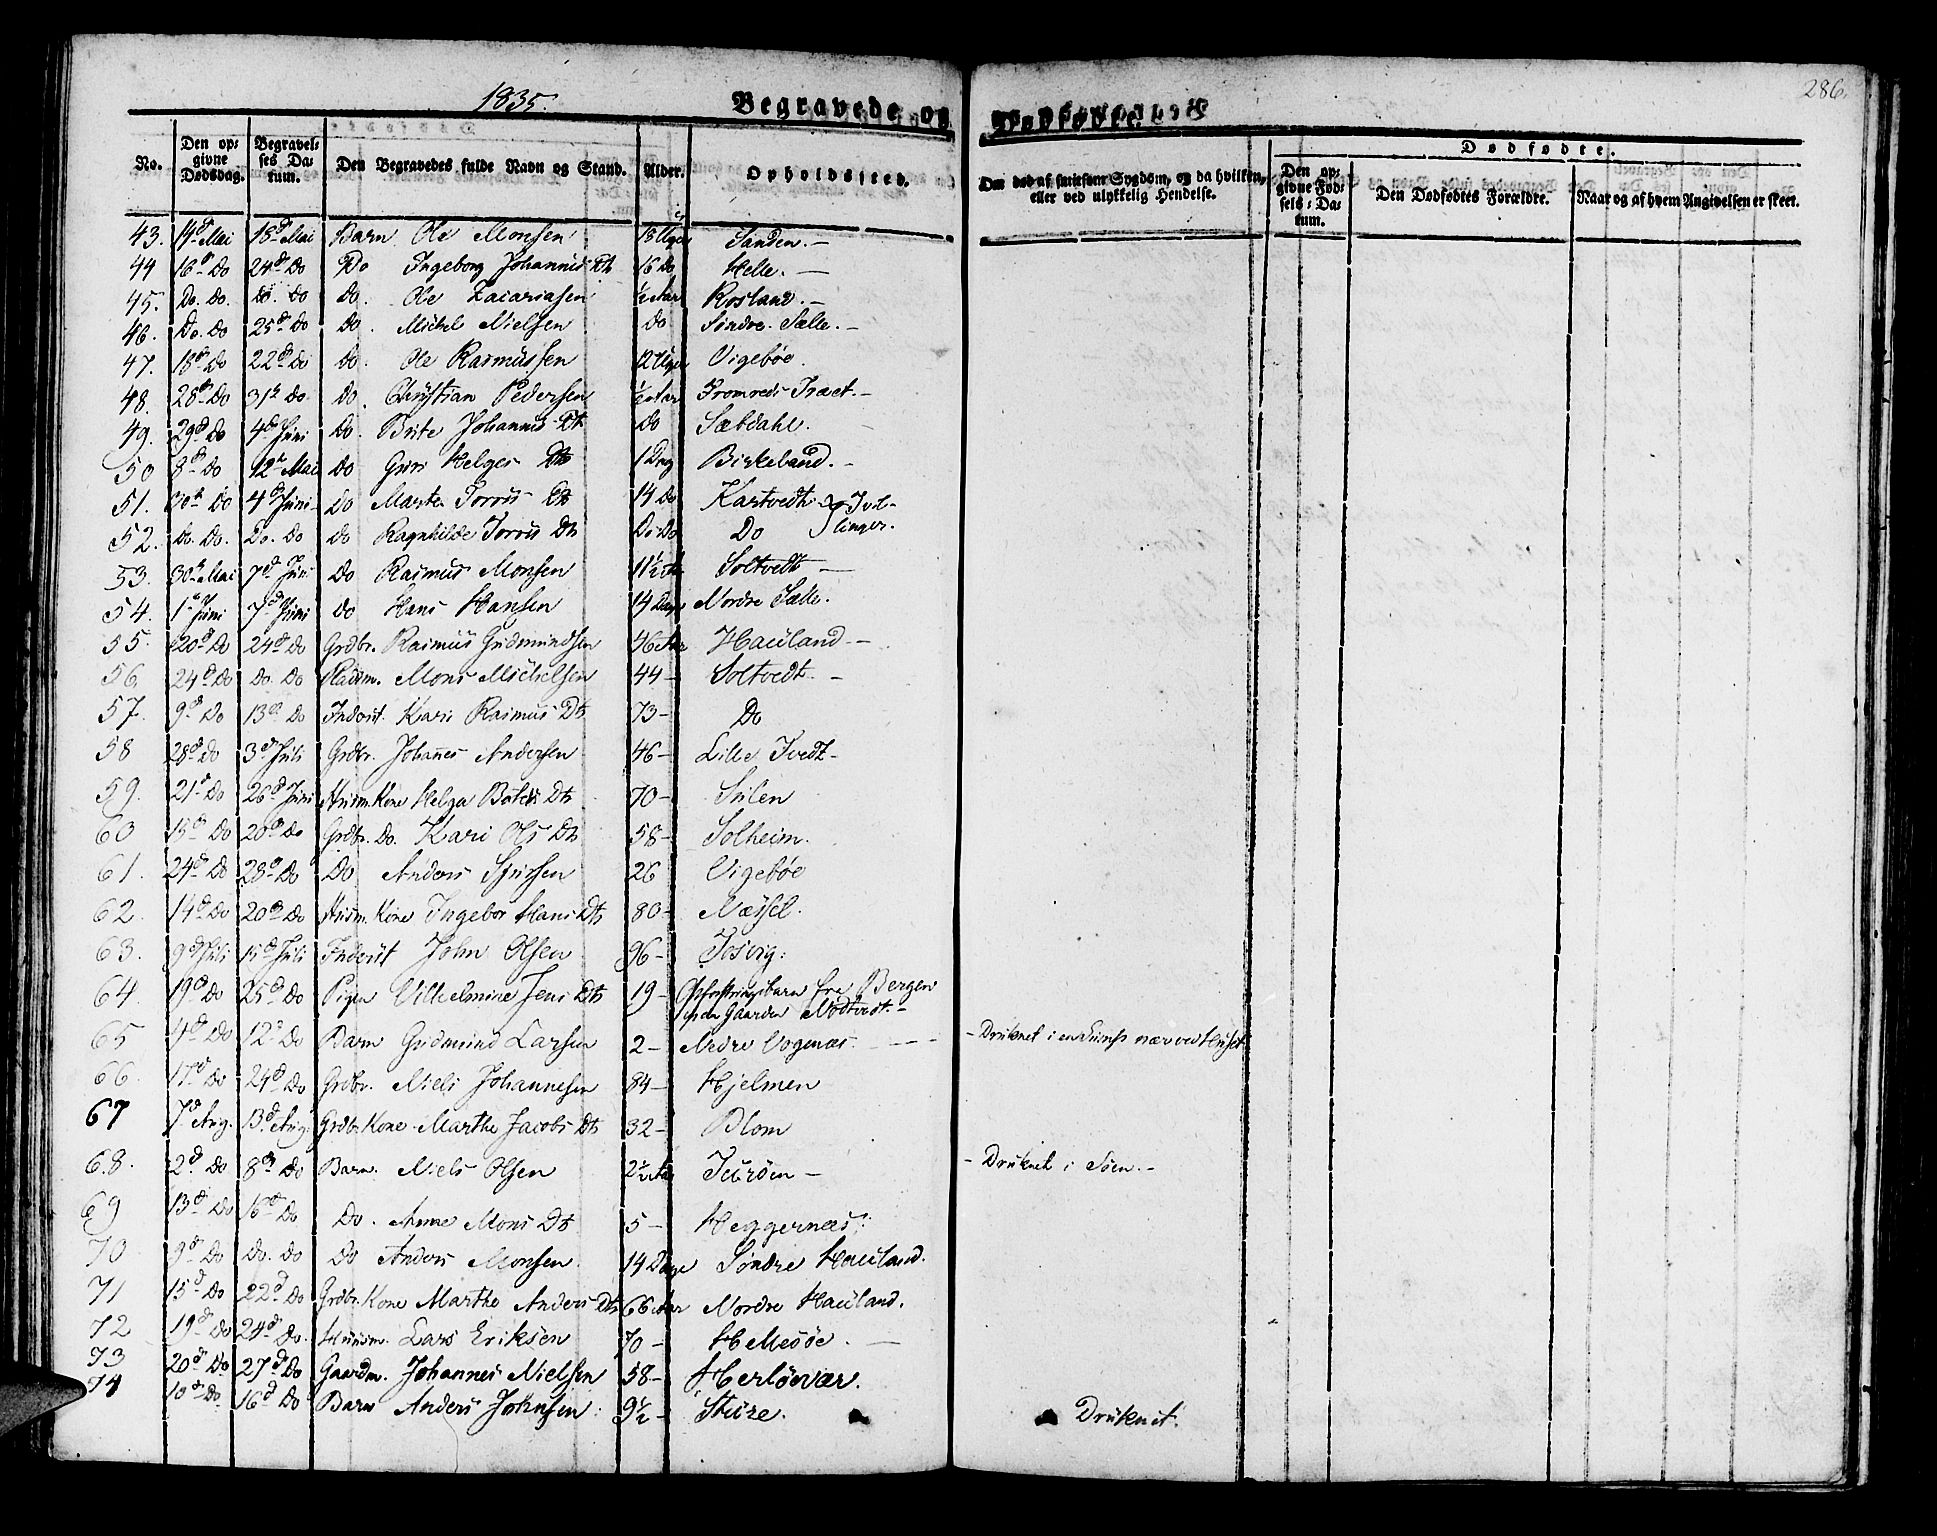 1835.
Begravede og Dødfødte.
286.
No. Den opgivne Dødsdag. Begravelses Datum. Den Begravedes fulde Navn og Stand. Alder. Opholdssted. Om død af smitsom Sygdom, og da hvilken, eller ved ulykkelig Hendelse. Dødfødte. Den opgivne Fødsels-Datum. Den Dødfødtes Forældre. Naar og af hvem Angivelsen er skeet.
43. 14d Mai 18d Mai Barn Ole Monsen 18 Uger Sanden.-
44 16d Do 24d Do Do Ingeborg Johannis Dt 16 Do Helle.-
45. Do. Do. Do. Do Do. Ole Zacariasen ½ Aar Rosland.-
46. Do. Do 25d Do Do. Michel Nielsen Do Søndre Sælle.-
47. 18d Do 22d Do Do. Ole Rasmussen 12 Uger Vigebøe.
48. 28d Do 31t Do Do. Christian Pedersen ½ Aar Fromreds Træet.-
49. 29d Do 4d Juni Do. Brite Johannis Dt Do Sæbdahl.
50 8d Do 12t Mai Do Guri Helges Dt 1 Dag Birkeland.-
51. 30t Do 4d Juni Do Marte Torris Dt 14 Do Kartvedt } Tvil-
52. Do. Do. Do. Do Do Ragnhilde Torris Dt Do Do Do linger.
53. 30t Mai 7d Juni Do Rasmus Monsen 11½ Soltvedt -
54. 1t Juni 7d Juni Do Hans Hansen 14 Dage Nordre Sælle.
55. 20d Do 24d Do Grdbr. Rasmus Gudmundsen 46 Aar Hauland.-
56. 24d Do Do. Do Pladsm. Mons Michelsen 44 - Soltvedt.-
57. 9d Do 13d Do Inderst. Kari Rasmus Dt 73 - Do
58 28d Do 3d Juli Grdbr. Johannes Andersen 46 - Lille Tvedt -
59. 21d Do 26d Juni Huusm. Kone Helga Dt 70 - Silen
60 15d Do 20d Do Grdbr. Do. Kari Ols Dt 58 - Solheim.
61. 24d Do 28d Do Do Anders Sjursen 26 Vigebøe
62. 14d Do 20d Do Huusm. Kone Ingebor Hans Dt 80 - Næssel.
63. 9d Juli 15d Juli Inderst John Olsen 96 - Josvig:
64. 19d Do 25d Do Pigen Vilhelmine Jens Dt 19 - Opfostringsbarn fra Bergen
paa Gaarden Nødtvedt.-
65 4d Do 12t Do Barn Gudmund Larsen 2 - Nedre Vogenæs - - - - Druknet i en Sump nær ved Huset
66. 17d Do 24d Do Grdbr. Niels Johannesen 84 - Hjelmen
67 7d Aug. 13d Aug. Grdbr. Kone Marthe Jacobs Dt 32 - Blom
68. 2d Do 8d Do Barn. Niels Olsen 2½ Aar Turøen - - Druknet i Søen.-
69 13d Do 16d Do Do. Anne Mons Dt 5 - Heggernæs:
70 9d Do Do. Do Do Anders Monsen 14 Dage Søndre Hauland.
71 15d Do 22d Do Grdbr. Kone Marthe Anders Dt 66 Aar Nordre Hauland.
72 19d Do 24d Do. Huusm. Lars Eriksen 70 - Hellesøe.-
73 20d Do 27d Do Gaardm. Johannes Nielsen 58 - Herløevær.
74 10d Do. 16d Do Barn Anders Johnsen 9½ - Sture. Druknet.